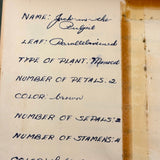 NAME: Jack-in-the
Pulpit
LEAF: Parallelveined
TYPE OF PLANT: Monocot
NUMBER OF PETALS: 2
COLOR: brown
NUMBER OF SEPALS: 2
NUMBER OF STAMENS: 4